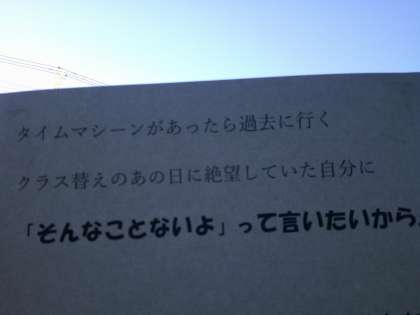 タイムマシーンがあったら過去に行く
クラス替えのあの日に絶望していた自分に
「そんなことないよ」って言いたいから。